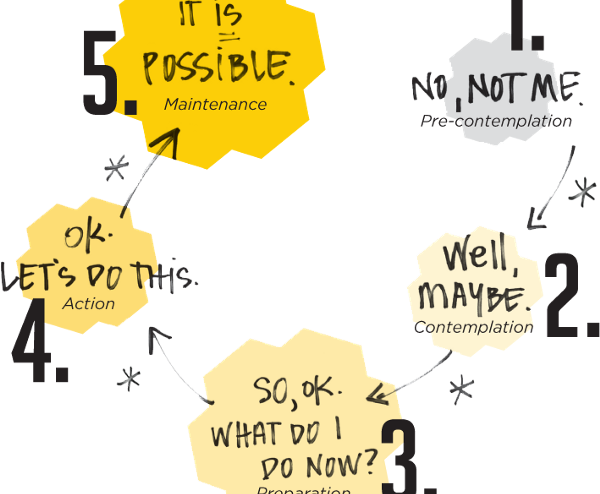 1.
NO, NOT ME.
Pre-contemplation
Well,
MAYBE.
Contemplation
2.
SO, OK.
WHAT DO I
DO NOW?
Preparation
3.
OK.
LET'S DO THIS.
Action
4.
IT IS
POSSIBLE.
Maintenance
5.